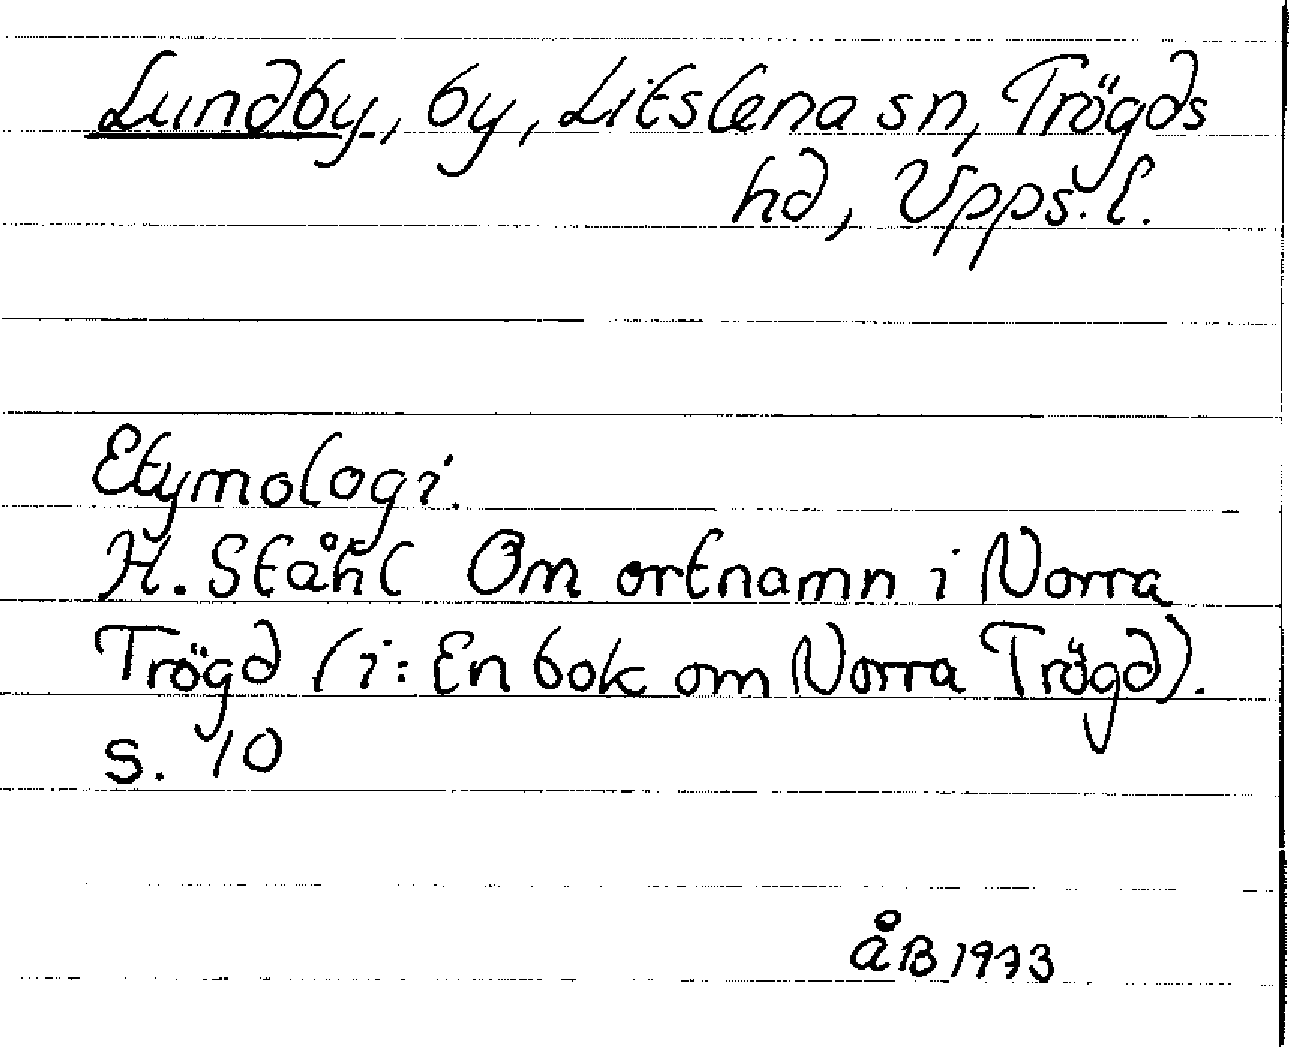 Lundby, by, Litslena sn, Trögds
hd, Upps. l.
Etymologi.
H. Ståhl Om ortnamn i Norra
Trögd (i: En bok om Norra Trögd).
s. 10
ÅB 1973